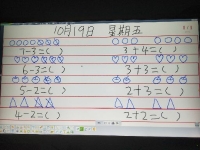 10月19日 星期五
7-3=( ) 3+4=( )
6-3=( ) 3+3=( )
5-2=( ) 2+3=( )
4-2=( ) 2+2=( )